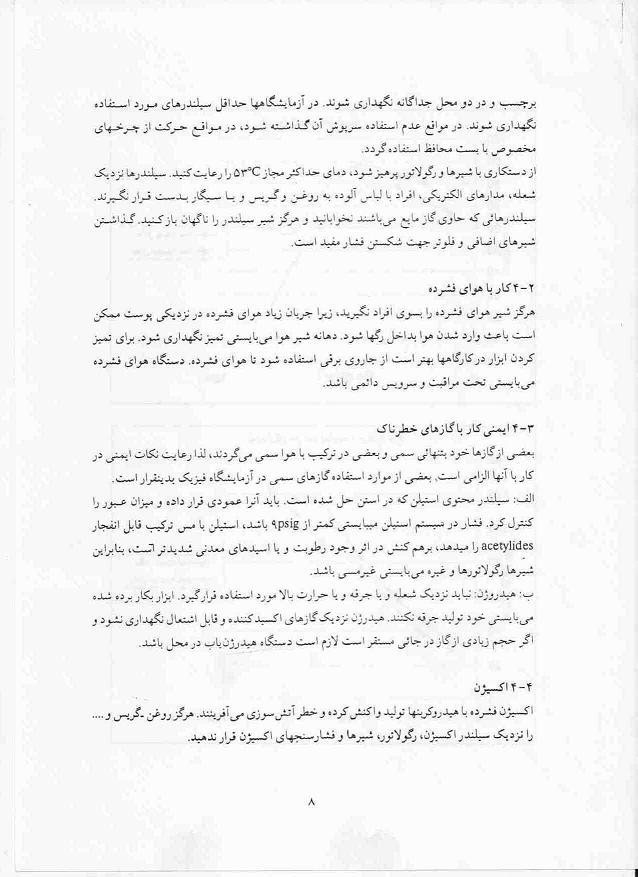 برچسب و در دو محل جداگانه نگهداری شوند. در آزمایشگاهها حداقل سیلندرهای مورد استفاده
نگهداری شوند. در مواقع عدم استفاده سرپوش آن گذاشته شود، در مواقع حرکت از چرخهای
مخصوص با بست محافظ استفاده گردد.
از دستکاری با شیرها و رگولاتور پرهیز شود، دمای حداکثر مجاز ۵۳°C را رعایت کنید. سیلندرها نزدیک
شعله، مدارهای الکتریکی، افراد با لباس آلوده به روغن و گریس و با سیگار بدست قرار نگیرند.
سیلندرهائی که حاوی گاز مایع می‌باشند نخوابانید و هرگز شیر سیلندر را ناگهان باز کنید. گذاشتن
شیرهای اضافی و فلوتر جهت شکستن فشار مفید است.
۴-۲ کار با هوای فشرده
هرگز شیر هوای فشرده را بسوی افراد نگیرید، زیرا جریان زیاد هوای فشرده در نزدیکی پوست ممکن
است باعث وارد شدن هوا بداخل رگها شود. دهانه شیر هوا می‌بایستی تمیز نگهداری شود. برای تمیز
کردن ابزار در کارگاهها بهتر است از جاروی برقی استفاده شود تا هوای فشرده. دستگاه هوای فشرده
می‌بایستی تحت مراقبت و سرویس دائمی باشد.
۴-۳ ایمنی کار با گازهای خطرناک
بعضی از گازها خود بتنهائی سمی و بعضی در ترکیب با هوا سمی می‌گردند، لذا رعایت نکات ایمنی در
کار با آنها الزامی است. بعضی از موارد استفاده گازهای سمی در آزمایشگاه فیزیک بدینقرار است.
الف: سیلندر محتوی استیلن که در استن حل شده است. باید آنرا عمودی قرار داده و میزان عبور را
کنترل کرد. فشار در سیستم استیلن میبایستی کمتر از ۹psig باشد، استیلن با مس ترکیب قابل انفجار
acetylides را میدهد، برهم کنش در اثر وجود رطوبت و یا اسیدهای معدنی شدیدتر است، بنابراین
شیرها رگولاتورها و غیره می‌بایستی غیرمسی باشد.
ب: هیدروژن: نباید نزدیک شعله و یا جرقه و یا حرارت بالا مورد استفاده قرار گیرد. ابزار بکار برده شده
می‌بایستی خود تولید جرقه نکنند. هیدرژن نزدیک گازهای اکسید کننده و قابل اشتعال نگهداری نشود و
اگر حجم زیادی از گاز در جائی مستقر است لازم است دستگاه هیدرژن‌یاب در محل باشد.
۴-۴ اکسیژن
اکسیژن فشرده با هیدروکربنها تولید واکنش کرده و خطر آتش‌سوزی می‌آفرینند. هرگز روغن -گریس و ....
را نزدیک سیلندر اکسیژن، رگولاتور، شیرها و فشارسنجهای اکسیژن قرار ندهید.
۸